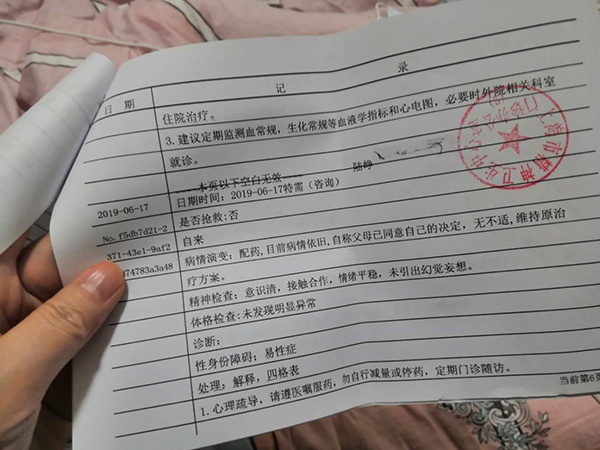 日 期 记 录
住院治疗。
3.建议定期监测血常规,生化常规等血液学指标和心电图,必要时外院相关科室
就诊。
陆峥
本页以下空白无效
2019-06-17 日期时间:2019-06-17特需(咨询)
是否抢救:否
No.f5db7d21-2 自来
371-43e1-9af2 病情演变:配药,目前病情依旧,自称父母已同意自己的决定,无不适,维持原治
74783a3a48 疗方案。
精神检查:意识清,接触合作,情绪平稳,未引出幻觉妄想。
体格检查:未发现明显异常
诊断:
性身份障碍:易性症
处理:解释,四格表
1.心理疏导,请遵医嘱服药,勿自行减量或停药,定期门诊随访。
当前第6页